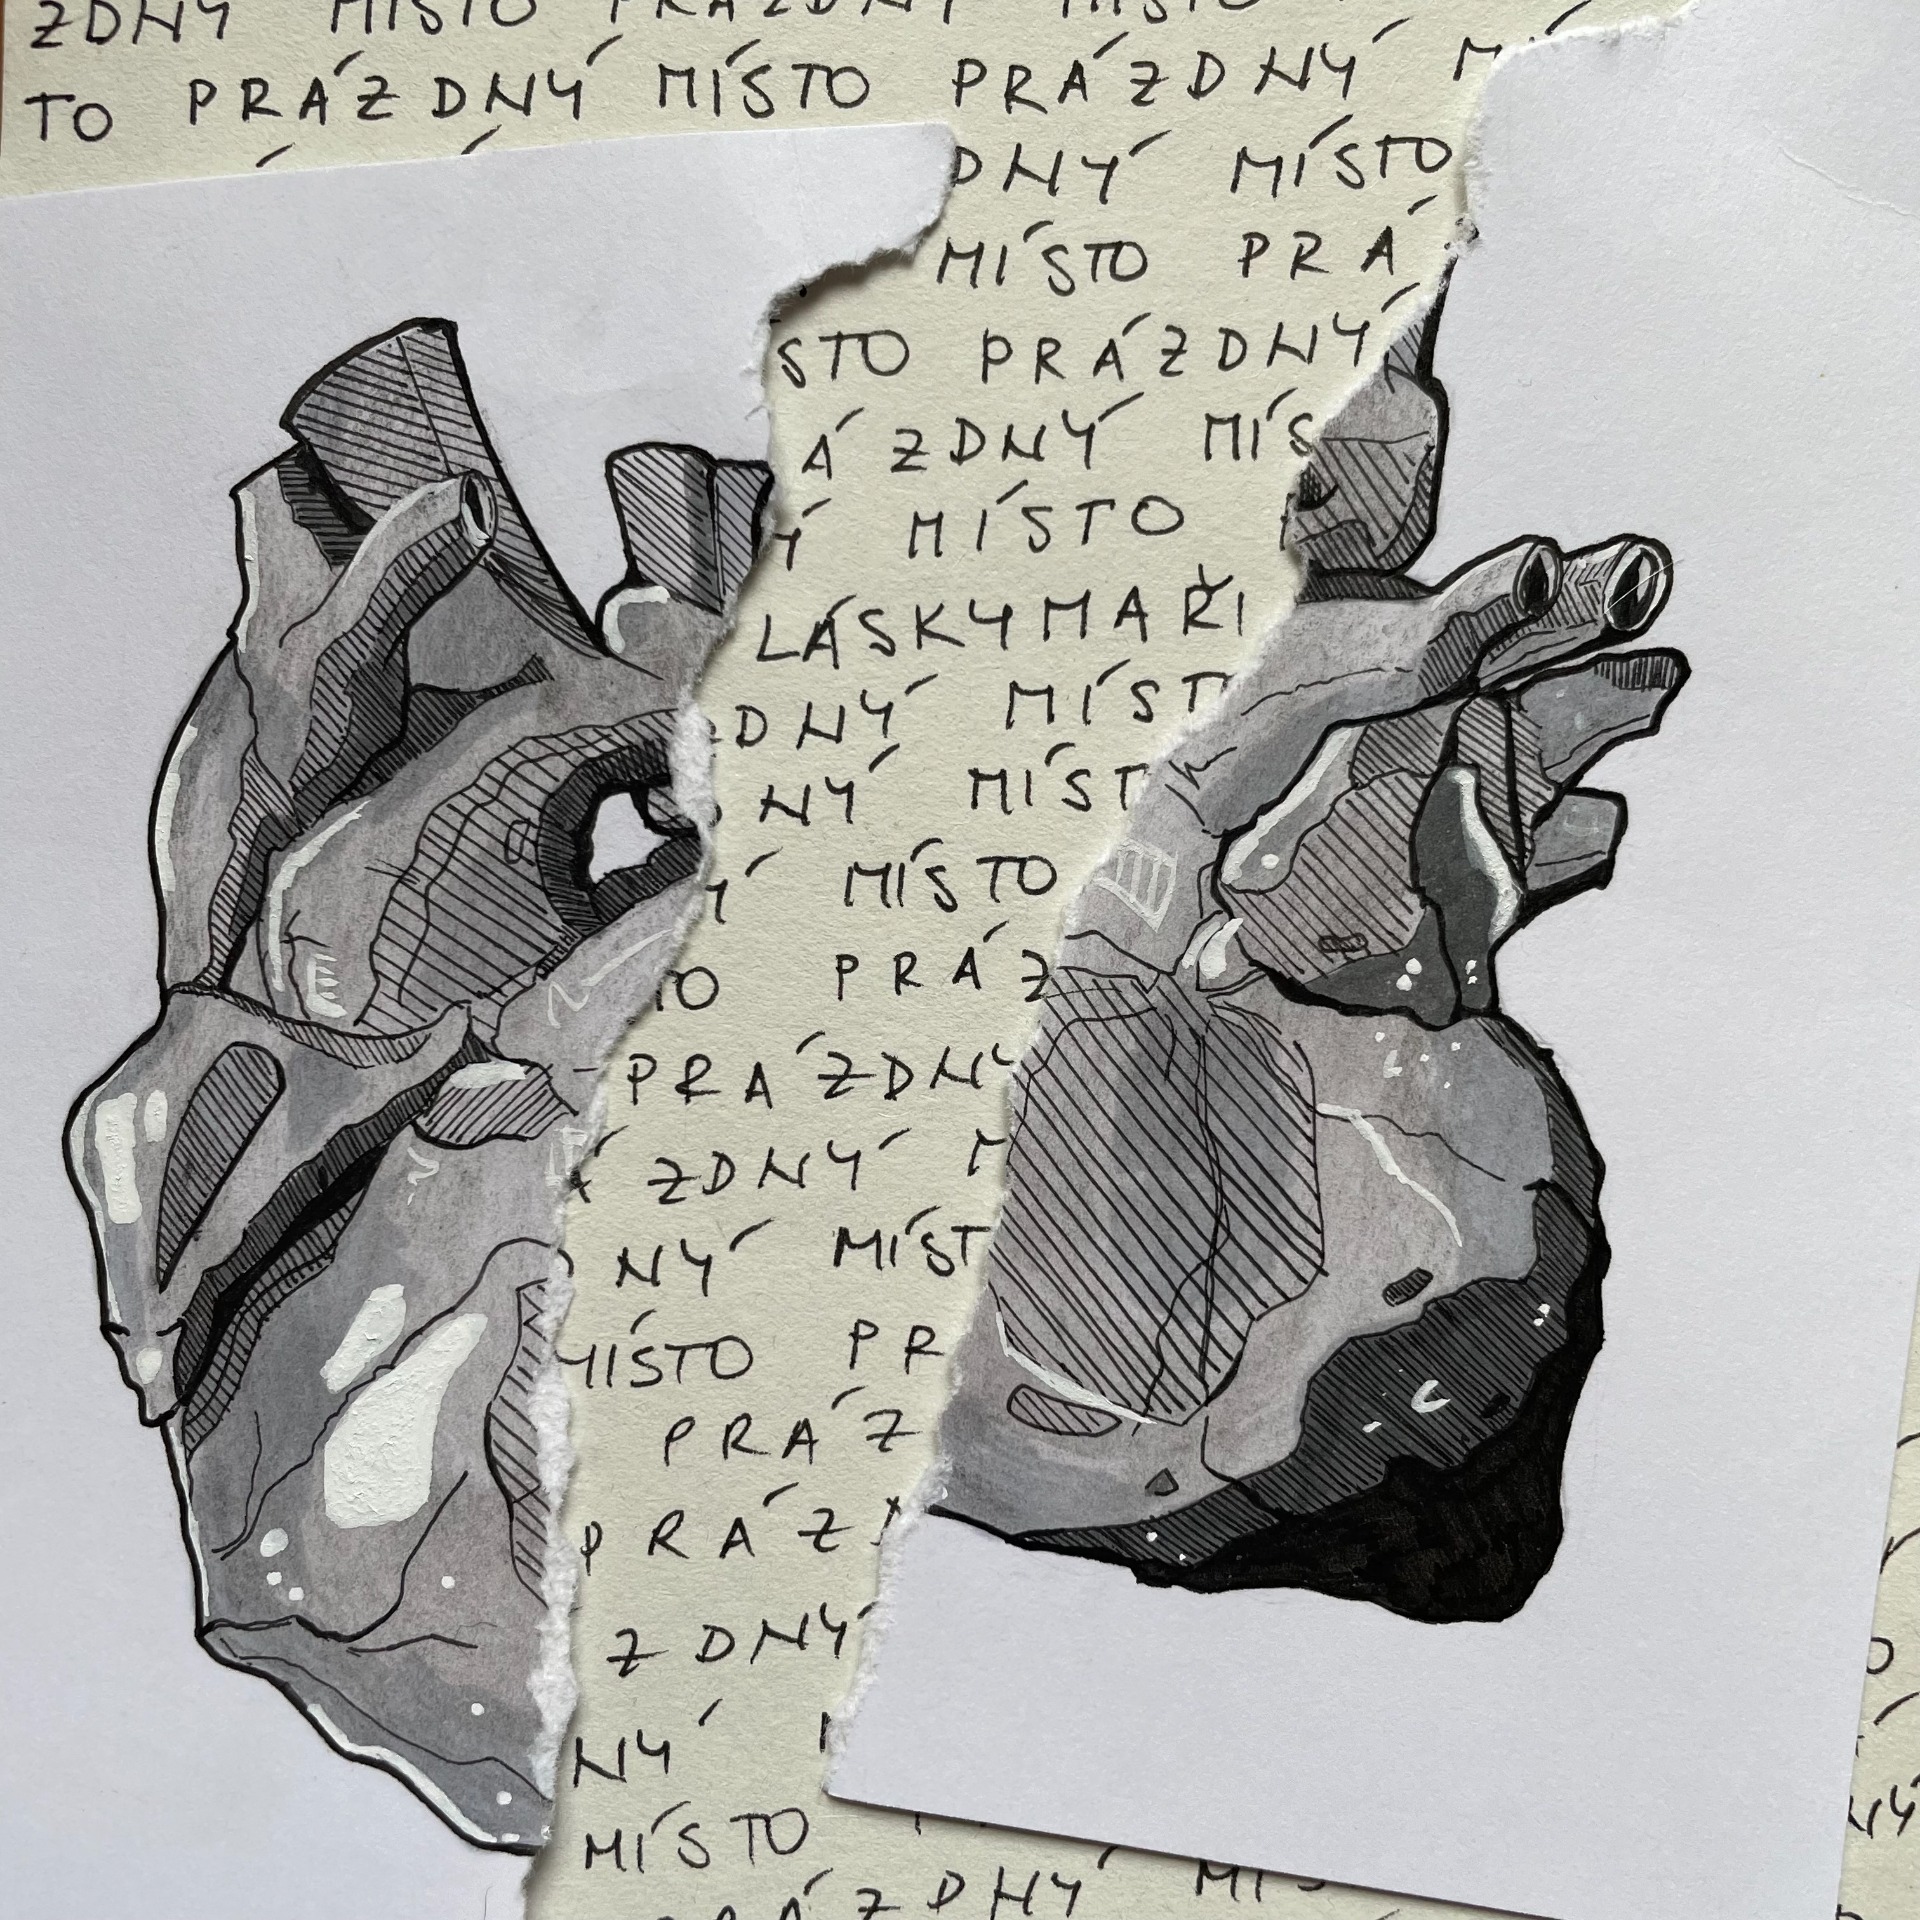 ZDNÝ MÍSTO PRÁZDNÝ MÍSTO
TO PRÁZDNÝ MÍSTO PRÁZDNÝ MÍ
DNÝ MÍSTO
MÍSTO PRÁ
STO PRÁZDNÝ
ÁZDNÝ MÍS
Ý MÍSTO
LÁSKYMAŘI
DNÝ MÍST
NÝ MÍST
Ý MÍSTO
TO PRÁZ
PRÁZDNÝ
ÁZDNÝ M
NÝ MÍST
MÍSTO PR
PRÁZ
PRÁZ
ZDNÝ
NÝ
MÍSTO
RÁZDNÝ MÍS